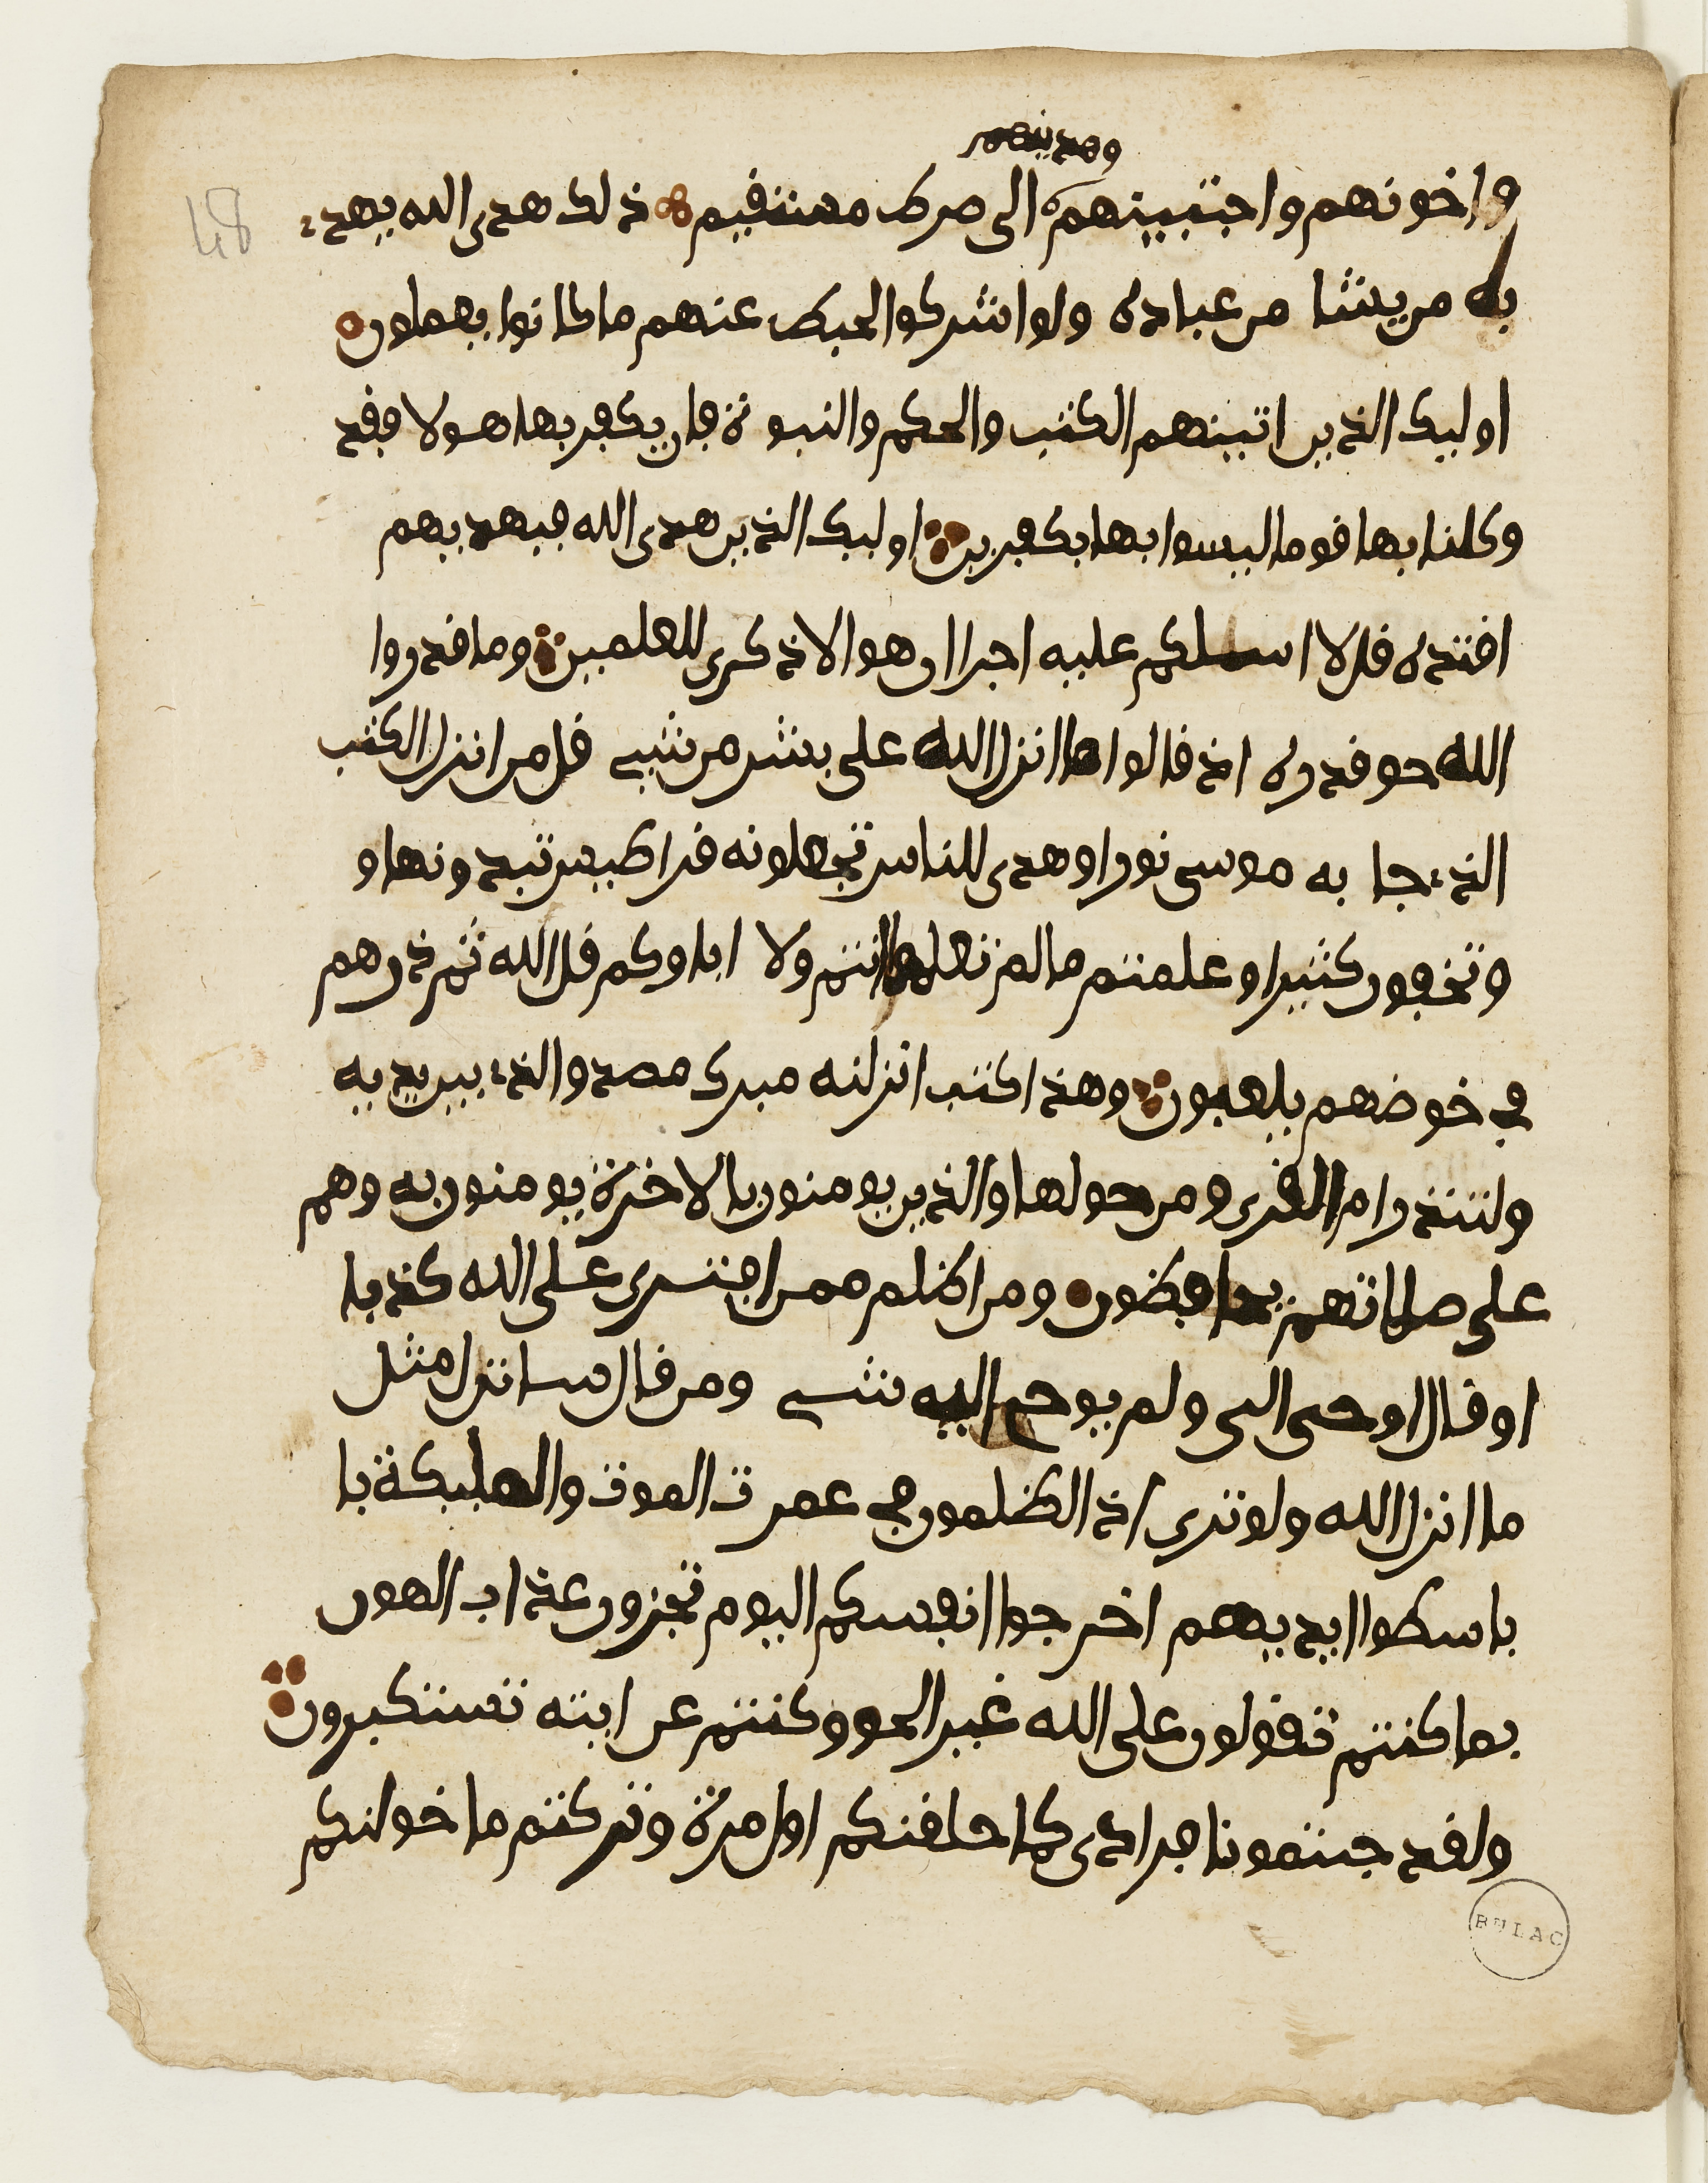 وهدينهم
واخونهم واجتبينهم الى صرط مستقيم ذلك هدى الله يهدے
به من يشا من عباده ولو اشركوا لحبط عنهم ما كانوا يعملون
اوليك الذين اتينهم الكتب والحكم والنبوة فان يكفر بها هولا فقد
وكلنا بها قوما ليسوا بها بكفرين اوليك الذين هدى الله فبهديهم
اقتده قل لا اسلكم عليه اجرا ان هو الا ذكرى للعلمين وما قدروا
الله حق قدره اذ قالوا ما انزل الله على بشر من شيے قل من انزل الكتب
الذے جا به موسى نورا وهدى للناس تجعلونه قراطيس تبدونها و
وتخفون كثيرا وعلمتم ما لم تعلموا انتم ولا اباوكم قل الله ثم ذرهم
في خوضهم يلعبون وهذا كتب انزلنه مبرك مصدق الذے بين يديه
ولتنذر ام القرى ومن حولها والذين يومنون بالاخرة يومنون به وهم
على صلاتهم يحافظون ومن اظلم ممن افترى على الله كذبا
او قال اوحى الى ولم يوح اليه شے ومن قال سانزل مثل
ما انزل الله ولو ترى اذ الظلمون في غمرت الموت والمليكة با
باسطوا ايديهم اخرجوا انفسكم اليوم تجزون عذاب الهون
بما كنتم تقولون على الله غير الحق وكنتم عن ايته تستكبرون
ولقد جيتمونا فرادى كما خلقنكم اول مرة وتركتم ما خولنكم
48
BULAC